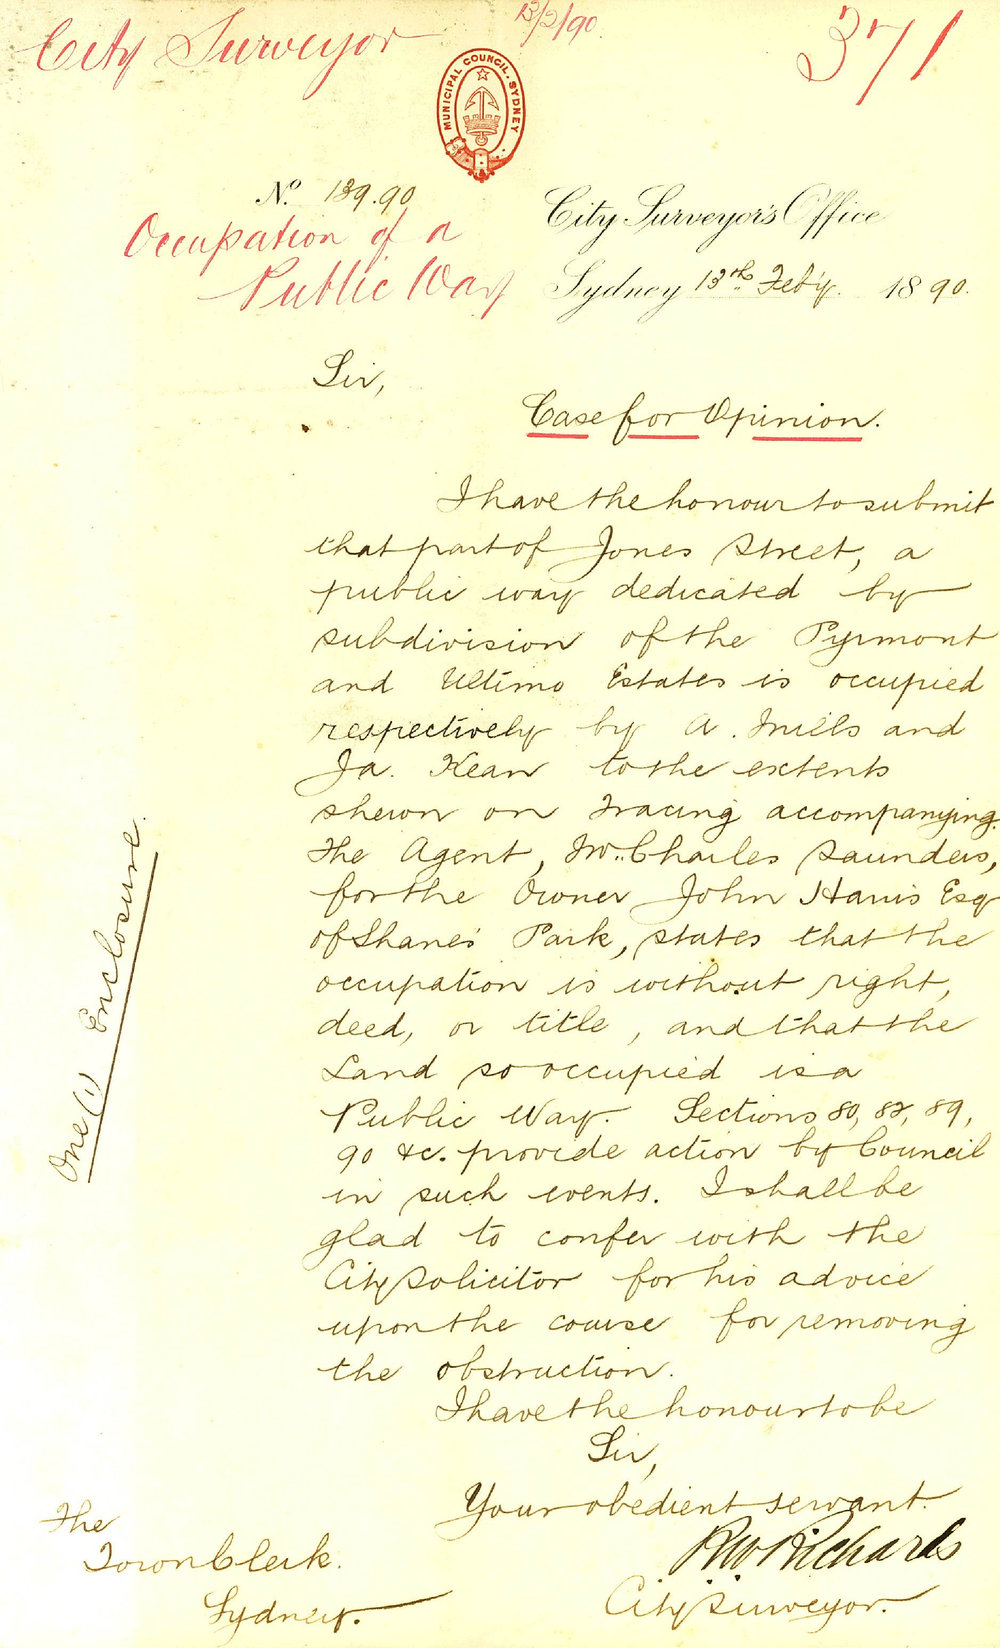 City Surveyor
13/2/90.
371
MUNICIPAL COUNCIL. SYDNEY
No. 139.90
Occupation of a
Public Way
City Surveyor's Office
Sydney 13th Feb'y. 1890.
Sir,
Case for Opinion.
I have the honour to submit
that part of Jones Street, a
public way dedicated by
subdivision of the Pyrmont
and Ultimo Estates is occupied
respectively by A. Mills and
Ja. Kean to the extents
shewn on tracing accompanying.
The Agent, Mr. Charles Saunders,
for the Owner John Harris Esq
of Shanes Park, states that the
occupation is without right,
deed, or title, and that the
Land so occupied is a
Public Way. Sections 80, 82, 89,
90 &c. provide action by Council
in such events. I shall be
glad to confer with the
City Solicitor for his advice
upon the course for removing
the obstruction.
I have the honour to be
Sir,
Your obedient servant.
RW Richards
City Surveyor.
The
Town Clerk.
Sydney.
One (1) Enclosure.